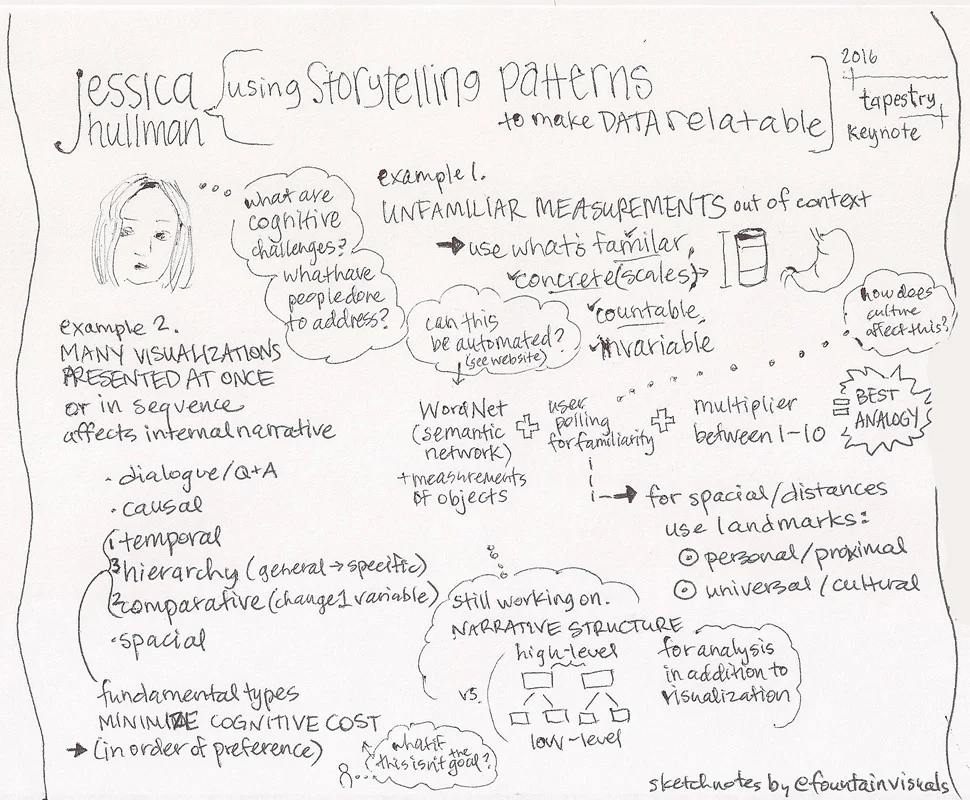 jessica
hullman
using Storytelling patterns
to make DATA relatable
2016
tapestry
keynote
what are
cognitive
challenges?
what have
people done
to address?
example 1.
UNFAMILIAR MEASUREMENTS out of context
use what's familar,
concrete (scales)
countable,
invariable
how does
culture
affect this?
can this
be automated?
(see website)
WordNet
(semantic
network)
+ measurements
of objects
user
polling
for familiarity
multiplier
between 1-10
=
BEST
ANALOGY
for spacial/distances
use landmarks:
personal/proximal
universal/cultural
example 2.
MANY VISUALIZATIONS
PRESENTED AT ONCE
or in sequence
affects internal narrative
· dialogue/Q+A
· causal
1 temporal
3 hierarchy (general → specific)
2 comparative (change 1 variable)
· spacial
fundamental types
MINIMIZE COGNITIVE COST
→ (in order of preference)
what if
this isn't the goal?
still working on.
NARRATIVE STRUCTURE
high-level
vs.
low-level
for analysis
in addition to
visualization
sketchnotes by @fountainvisuals